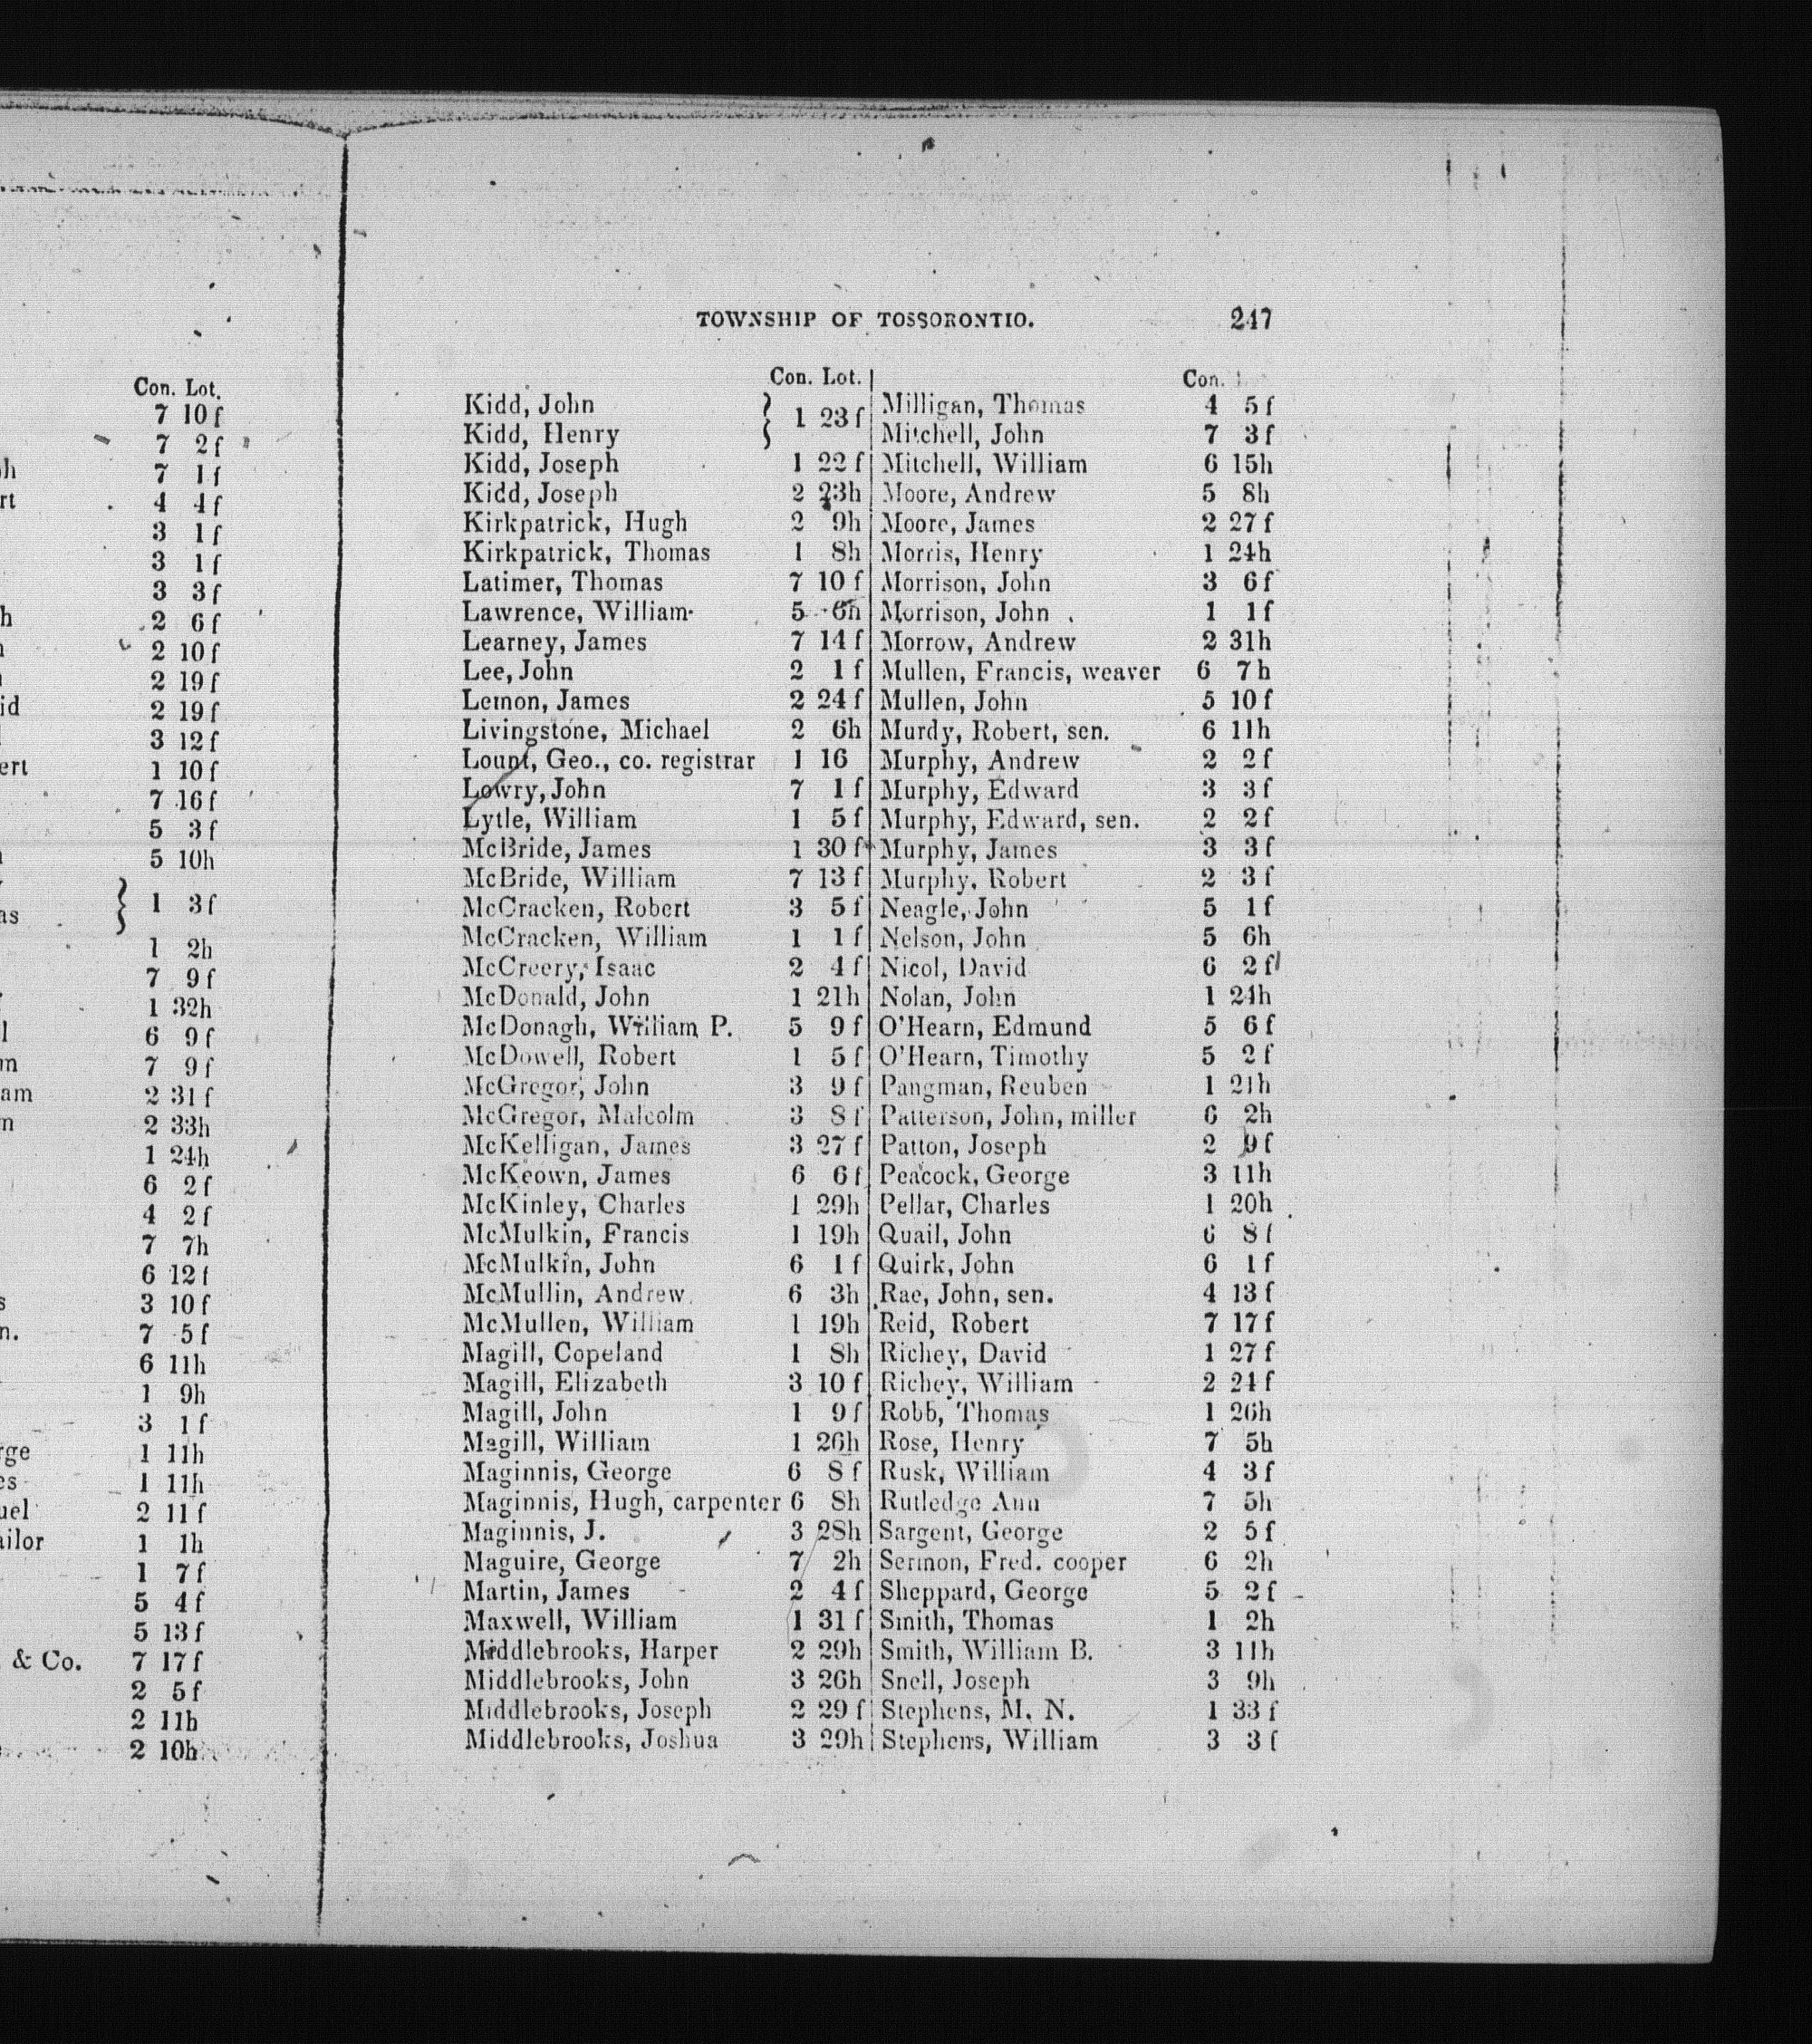 Con. Lot.
7 10 f
7 2 f
h 7 1 f
rt 4 4 f
3 1 f
3 1 f
3 3 f
h 2 6 f
2 10 f
2 19 f
id 2 19 f
3 12 f
ert 1 10 f
7 16 f
5 3 f
5 10h
as } 1 3 f
1 2h
7 9 f
1 32h
l 6 9 f
m 7 9 f
am 2 31 f
n 2 33h
1 24h
6 2 f
4 2 f
7 7h
6 12 f
s 3 10 f
n. 7 5 f
6 11h
1 9h
3 1 f
rge 1 11h
es 1 11h
uel 2 11 f
ailor 1 1h
1 7 f
5 4 f
5 13 f
& Co. 7 17 f
2 5 f
2 11h
2 10h
TOWNSHIP OF TOSSORONTIO. 247
Con. Lot.
Kidd, John } 1 23 f
Kidd, Henry
Kidd, Joseph 1 22 f
Kidd, Joseph 2 23h
Kirkpatrick, Hugh 2 9h
Kirkpatrick, Thomas 1 8h
Latimer, Thomas 7 10 f
Lawrence, William 5 6h
Learney, James 7 14 f
Lee, John 2 1 f
Lemon, James 2 24 f
Livingstone, Michael 2 6h
Lount, Geo., co. registrar 1 16
Lowry, John 7 1 f
Lytle, William 1 5 f
McBride, James 1 30 f
McBride, William 7 13 f
McCracken, Robert 3 5 f
McCracken, William 1 1 f
McCreery, Isaac 2 4 f
McDonald, John 1 21h
McDonagh, William P. 5 9 f
McDowell, Robert 1 5 f
McGregor, John 3 9 f
McGregor, Malcolm 3 8 f
McKelligan, James 3 27 f
McKeown, James 6 6 f
McKinley, Charles 1 29h
McMulkin, Francis 1 19h
McMulkin, John 6 1 f
McMullin, Andrew 6 3h
McMullen, William 1 19h
Magill, Copeland 1 8h
Magill, Elizabeth 3 10 f
Magill, John 1 9 f
Magill, William 1 26h
Maginnis, George 6 8 f
Maginnis, Hugh, carpenter 6 8h
Maginnis, J. 3 28h
Maguire, George 7 2h
Martin, James 2 4 f
Maxwell, William 1 31 f
Middlebrooks, Harper 2 29h
Middlebrooks, John 3 26h
Middlebrooks, Joseph 2 29 f
Middlebrooks, Joshua 3 29h
Con.
Milligan, Thomas 4 5 f
Mitchell, John 7 3 f
Mitchell, William 6 15h
Moore, Andrew 5 8h
Moore, James 2 27 f
Morris, Henry 1 24h
Morrison, John 3 6 f
Morrison, John 1 1 f
Morrow, Andrew 2 31h
Mullen, Francis, weaver 6 7h
Mullen, John 5 10 f
Murdy, Robert, sen. 6 11h
Murphy, Andrew 2 2 f
Murphy, Edward 3 3 f
Murphy, Edward, sen. 2 2 f
Murphy, James 3 3 f
Murphy, Robert 2 3 f
Neagle, John 5 1 f
Nelson, John 5 6h
Nicol, David 6 2 f
Nolan, John 1 24h
O'Hearn, Edmund 5 6 f
O'Hearn, Timothy 5 2 f
Pangman, Reuben 1 21h
Patterson, John, miller 6 2h
Patton, Joseph 2 9 f
Peacock, George 3 11h
Pellar, Charles 1 20h
Quail, John 6 8 f
Quirk, John 6 1 f
Rae, John, sen. 4 13 f
Reid, Robert 7 17 f
Richey, David 1 27 f
Richey, William 2 24 f
Robb, Thomas 1 26h
Rose, Henry 7 5h
Rusk, William 4 3 f
Rutledge Ann 7 5h
Sargent, George 2 5 f
Sermon, Fred. cooper 6 2h
Sheppard, George 5 2 f
Smith, Thomas 1 2h
Smith, William B. 3 11h
Snell, Joseph 3 9h
Stephens, M. N. 1 33 f
Stephens, William 3 3 f